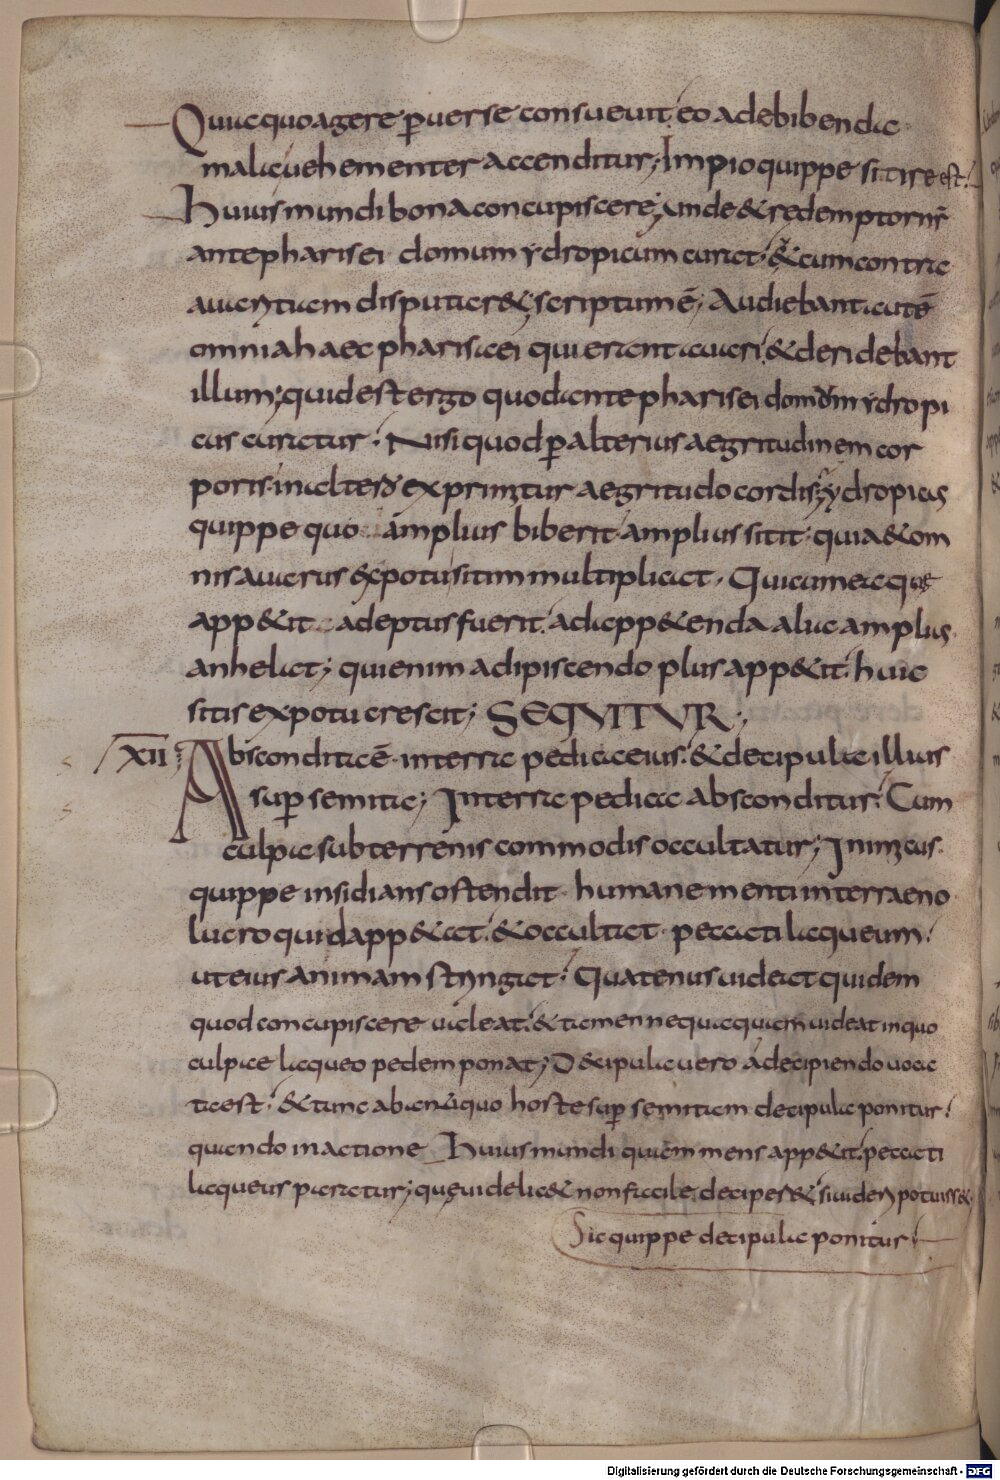 Quia quo agere ꝑuerse consueuit eo adebibenda
mala uehementer accenditur; Impio quippe sitire est.
Huius mundi bona concupiscere; unde & redemptor nr̄
ante pharisei domum ydropicum curat. & cum contra
auaritiam disputaret scriptum ē; Audiebant autē
omnia haec pharisaei qui erant auari. & deridebant
illum; quid est ergo quod ante pharisei domum ydropi
cus curatur. Nisi quod ꝑ alterius aegritudinem cor
poris. in altero exprimitur aegritudo cordis; ydropicus
quippe quo amplius biberit amplius sitit. quia & om
nis auarus & potu sitim multiplicat. Qui cum ea quę
app&it adeptus fuerit. ad app&enda alia amplius
anhelat; qui enim adipiscendo plus app&it. huic
sitis ex potu crescit; SEQUITUR;
XII Abscondita ē in terra pedica eius. & decipula illius
suꝑ semitā; In terra pedica absconditur. Cum
culpa sub terrenis commodis occultatur; Inimicus
quippe insidians ostendit humane menti in terraeno
lucro quid app&at. & occultat peccati laqueum.
ut eius animam stringat. Quatenus uideat quidem
quod concupiscere ualeat. & tamen nequaquam uideat in quo
culpae laqueo pedem ponat; D&ipula uero a decipiendo uoca
ta est. & tunc ab antiquo hoste suꝑ semitam decipula ponitur.
quando in actione Huius mundi quam mens app&it. peccati
laqueus paratur; quę uidelic& non facile deciper& si uideri potuiss&
Sic quippe decipula ponitur
Digitalisierung gefördert durch die Deutsche Forschungsgemeinschaft - DFG